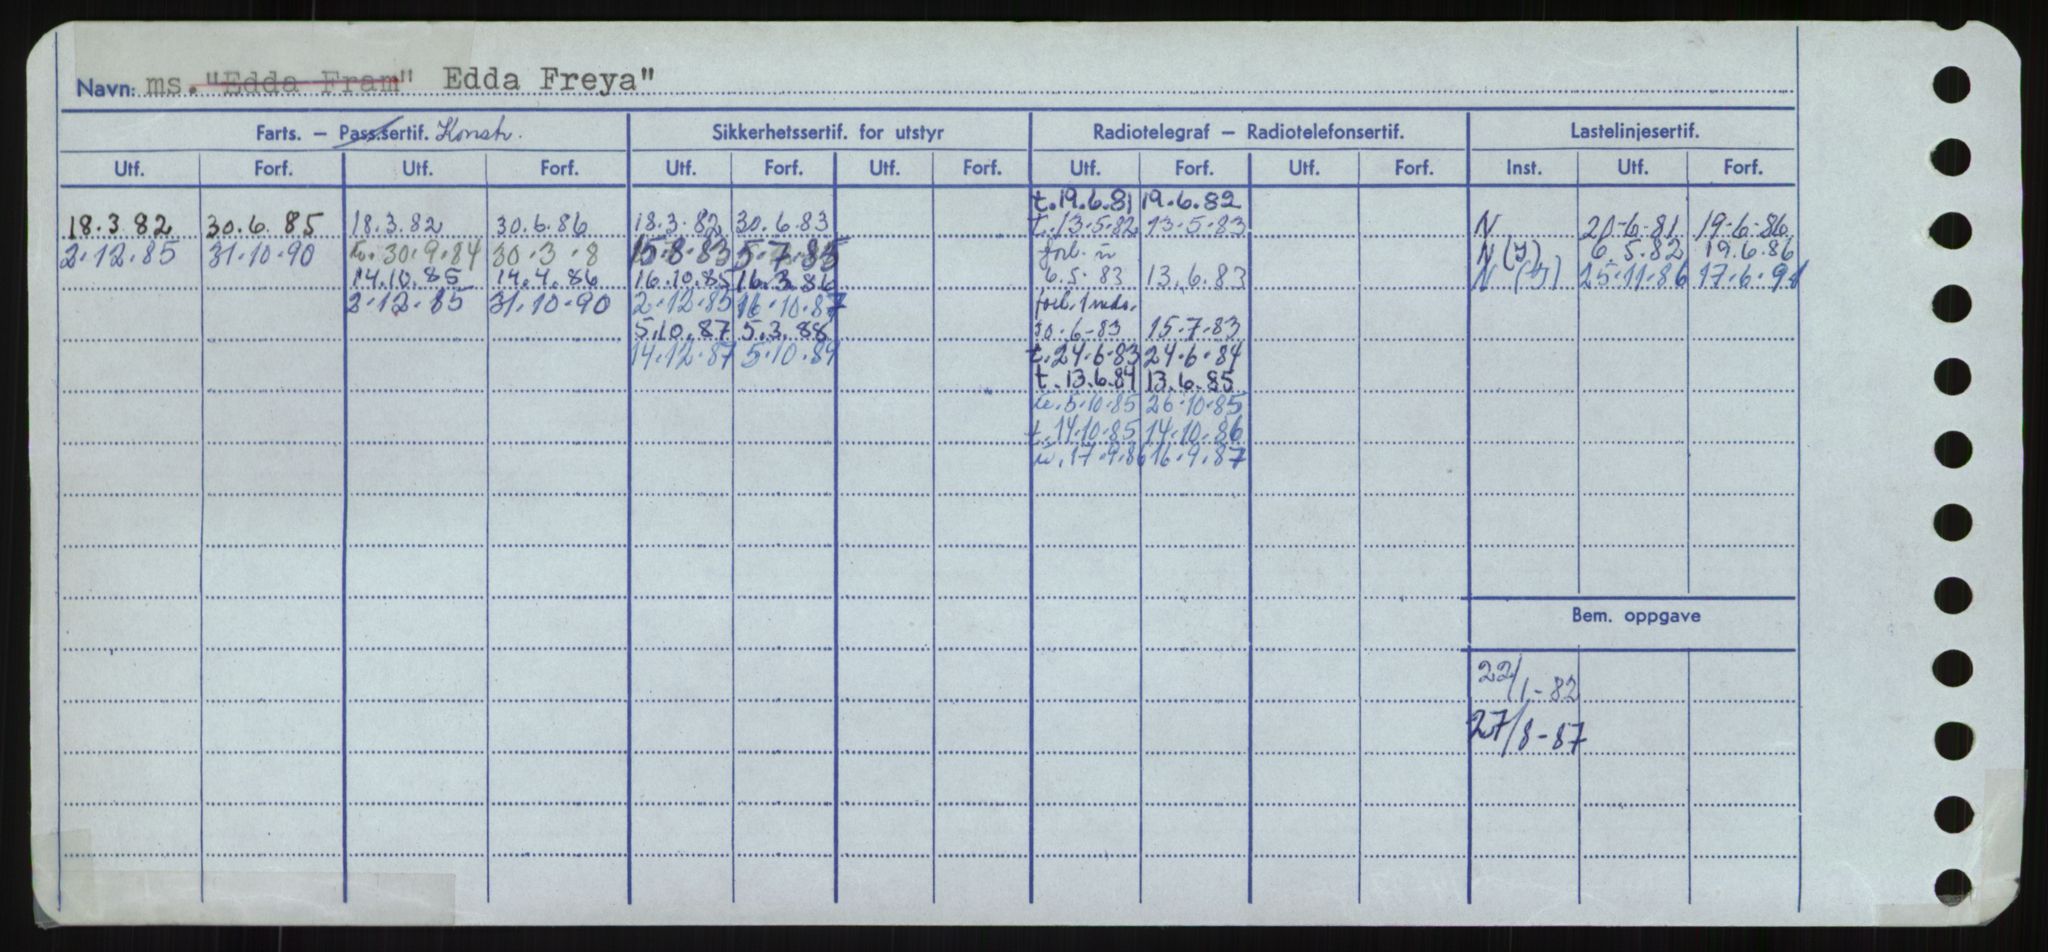 Navn: ms. "Edda Fram" Edda Freya"
Farts. – Pass.sertif. Konstr. Sikkerhetssertif. for utstyr Radiotelegraf – Radiotelefonsertif. Lastelinjesertif.
Utf. Forf. Utf. Forf. Utf. Forf. Utf. Forf. Utf. Forf. Utf. Forf. Inst. Utf. Forf.
t. 19.6.81 19.6.82
18.3.82 30.6.85 18.3.82 30.6.86 18.3.82 30.6.83 t. 13.5.82 13.5.83 N 20-6-81 19-6-86
2.12.85 31.10.90 30.9.84 30.3.8 15.8.83 5.7.85 forl. N (I) 6.5.82 19.6.86
14.10.85 14.4.86 16.10.85 16.3.86 6.5.83 13.6.83 N (I) 25.11.86 17.6.91
2.12.85 31.10.90 2.12.85 16.10.87 forl. 1 mda.
5.10.87 5.3.88 30.6-83 15.7.83
14.12.87 5.10.89 t. 24.6.83 24.6.84
t. 13.6.84 13.6.85
5.10.85 26.10.85
t. 14.10.85 14.10.86
17.9.86 16.9.87
Bem. oppgave
22/1-82
27/8-87